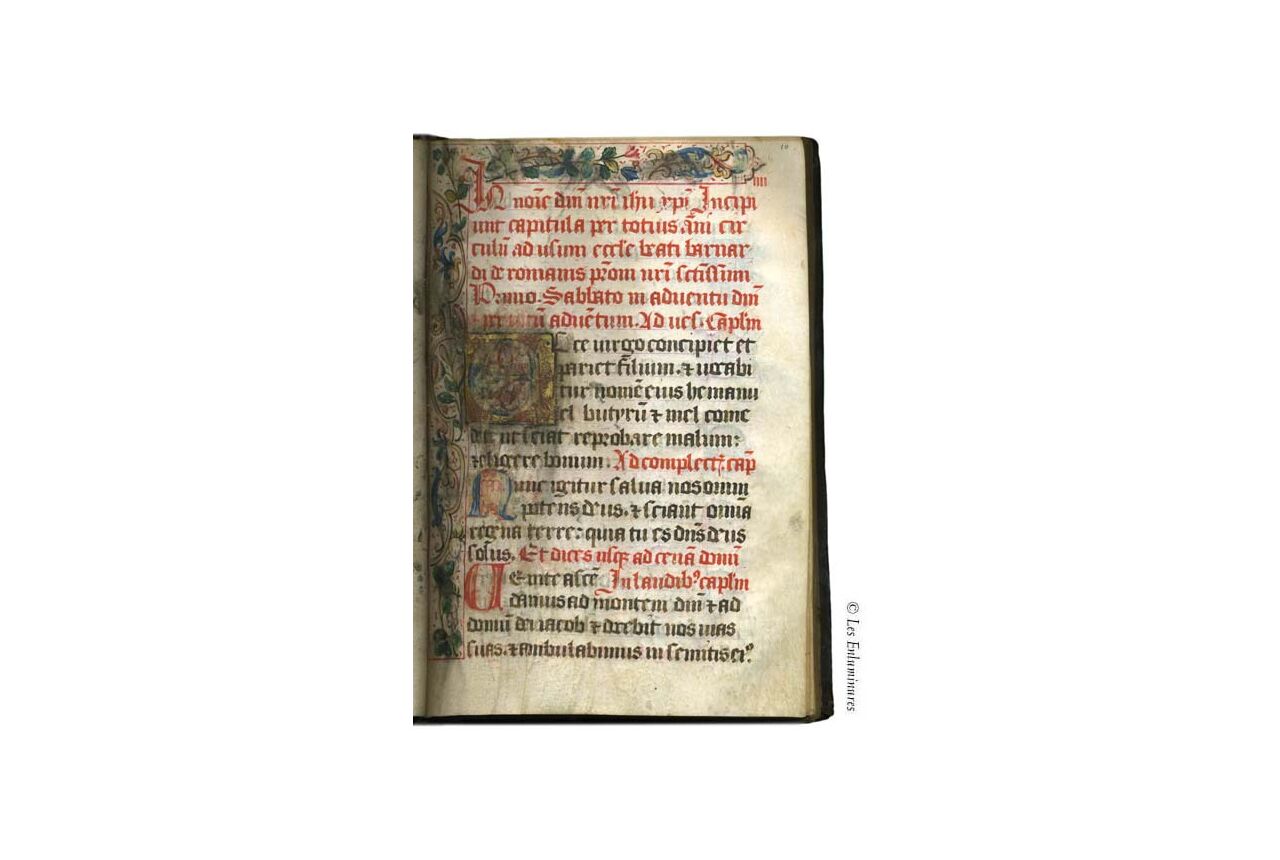 10
IIII
In noīe dn̄i nr̄i ihu xp̄i Incipi
unt capitula per totius ān̄i cir
culū ad usum eccl'e beati barnar
di de romanis pr̄om nr̄i sctissim
Primo. Sabbato in aduentu dn̄i
aduētum. Ad ues. Cap̄lm
Ecce uirgo concipiet et
pariet filium. ⁊ uocabi
tur nomē eius hemanu
el butyrū ⁊ mel come
det ut sciat reprobare malum:
⁊ eligere bonum. Ad complect'. cap̄
Nunc igitur salua nos omni
potens deus. ⁊ sciant omīa
regna terre: quia tu es dn̄s deus
solus. Et dices usq; ad cenā domī
Uenite ascē In laudibꝰ cap̄lm
damus ad montem dn̄i ⁊ ad
domū dei iacob ⁊ docebit nos uias
suas. ⁊ ambulabimus in semitis eiꝰ.
© Les Enluminures